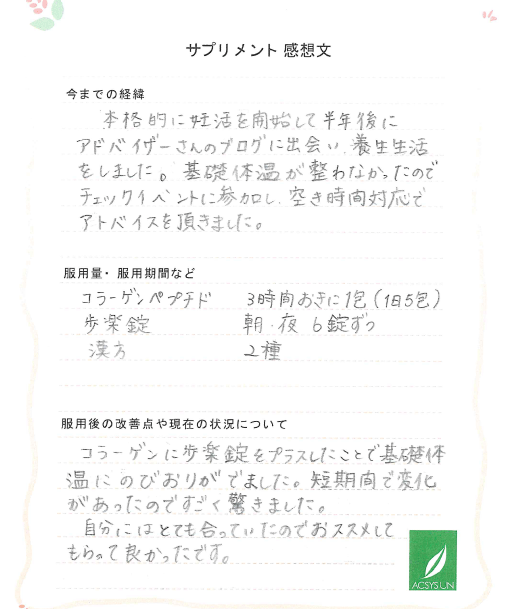 サプリメント 感想文
今までの経緯
本格的に妊活を開始して半年後に
アドバイザーさんのブログに出会い、養生生活
をしました。基礎体温が整わなかったので
チェックイベントに参加し、空き時間対応で
アトバイスを頂きました。
服用量・服用期間など
コラーゲンペプチド 3時間おきに1包(1日5包)
歩楽錠 朝・夜 6錠ずつ
漢方 2種
服用後の改善点や現在の状況について
コラーゲンに歩楽錠をプラスしたことで基礎体
温にのびおりがでました。短期間で変化
があったのですごく驚きました。
自分にはとても合っていたのでおススメして
もらって良かったです。
ACSYSUN